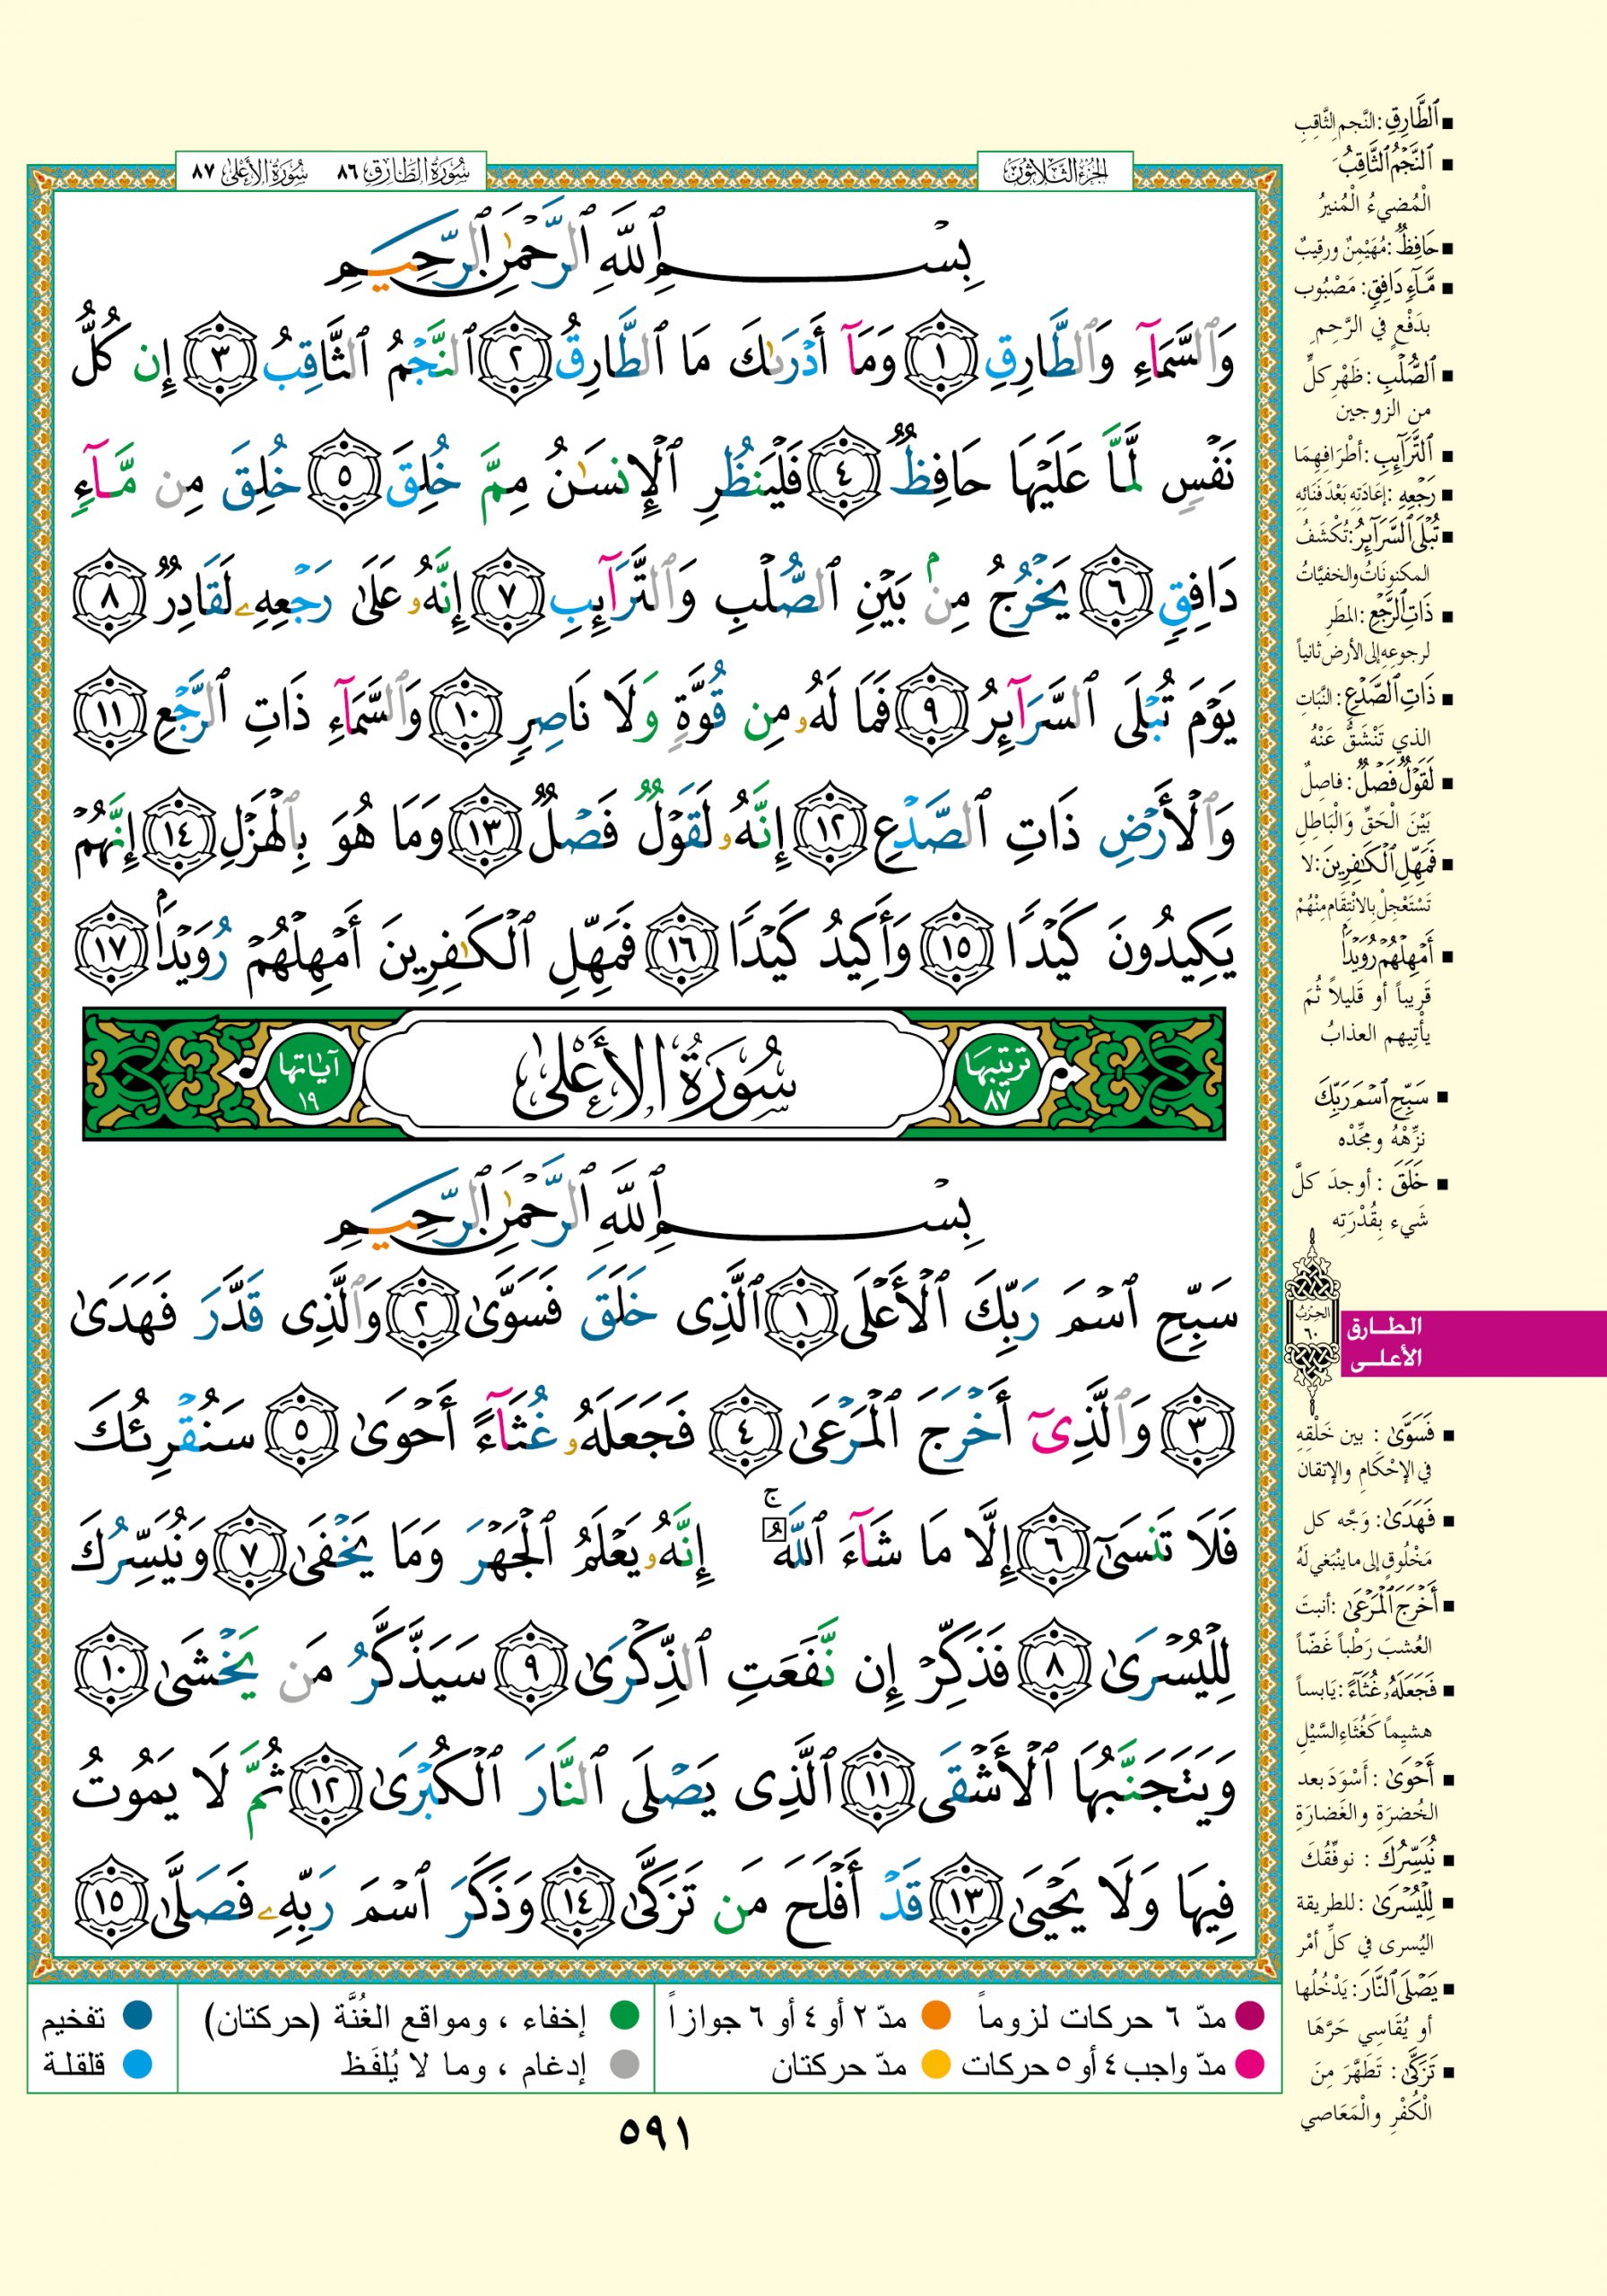 سُورَةُ الطَّارِق ٨٦ سُورَةُ الأَعْلَىٰ ٨٧
الجُزءُ الثَّلَاثُون
بِسْمِ ٱللَّهِ ٱلرَّحْمَٰنِ ٱلرَّحِيمِ
وَٱلسَّمَآءِ وَٱلطَّارِقِ ١ وَمَآ أَدْرَىٰكَ مَا ٱلطَّارِقُ ٢ ٱلنَّجْمُ ٱلثَّاقِبُ ٣ إِن كُلُّ
نَفْسٍ لَّمَّا عَلَيْهَا حَافِظٌ ٤ فَلْيَنظُرِ ٱلْإِنسَٰنُ مِمَّ خُلِقَ ٥ خُلِقَ مِن مَّآءٍ
دَافِقٍ ٦ يَخْرُجُ مِنۢ بَيْنِ ٱلصُّلْبِ وَٱلتَّرَآئِبِ ٧ إِنَّهُۥ عَلَىٰ رَجْعِهِۦ لَقَادِرٌ ٨
يَوْمَ تُبْلَى ٱلسَّرَآئِرُ ٩ فَمَا لَهُۥ مِن قُوَّةٍ وَلَا نَاصِرٍ ١٠ وَٱلسَّمَآءِ ذَاتِ ٱلرَّجْعِ ١١
وَٱلْأَرْضِ ذَاتِ ٱلصَّدْعِ ١٢ إِنَّهُۥ لَقَوْلٌ فَصْلٌ ١٣ وَمَا هُوَ بِٱلْهَزْلِ ١٤ إِنَّهُمْ
يَكِيدُونَ كَيْدًا ١٥ وَأَكِيدُ كَيْدًا ١٦ فَمَهِّلِ ٱلْكَٰفِرِينَ أَمْهِلْهُمْ رُوَيْدًۢا ١٧
ترتيبها ٨٧ سُورَةُ الأَعْلَىٰ آياتها ١٩
بِسْمِ ٱللَّهِ ٱلرَّحْمَٰنِ ٱلرَّحِيمِ
سَبِّحِ ٱسْمَ رَبِّكَ ٱلْأَعْلَى ١ ٱلَّذِى خَلَقَ فَسَوَّىٰ ٢ وَٱلَّذِى قَدَّرَ فَهَدَىٰ
٣ وَٱلَّذِىٓ أَخْرَجَ ٱلْمَرْعَىٰ ٤ فَجَعَلَهُۥ غُثَآءً أَحْوَىٰ ٥ سَنُقْرِئُكَ
فَلَا تَنسَىٰٓ ٦ إِلَّا مَا شَآءَ ٱللَّهُ ۚ إِنَّهُۥ يَعْلَمُ ٱلْجَهْرَ وَمَا يَخْفَىٰ ٧ وَنُيَسِّرُكَ
لِلْيُسْرَىٰ ٨ فَذَكِّرْ إِن نَّفَعَتِ ٱلذِّكْرَىٰ ٩ سَيَذَّكَّرُ مَن يَخْشَىٰ ١٠
وَيَتَجَنَّبُهَا ٱلْأَشْقَى ١١ ٱلَّذِى يَصْلَى ٱلنَّارَ ٱلْكُبْرَىٰ ١٢ ثُمَّ لَا يَمُوتُ
فِيهَا وَلَا يَحْيَىٰ ١٣ قَدْ أَفْلَحَ مَن تَزَكَّىٰ ١٤ وَذَكَرَ ٱسْمَ رَبِّهِۦ فَصَلَّىٰ ١٥
▪ ٱلطَّارِقِ : النَّجم الثَّاقِبِ
▪ ٱلنَّجْمُ ٱلثَّاقِبُ :
الْمُضِيءُ الْمُنيرُ
▪ حَافِظٌ : مُهَيْمِنٌ ورقيبٌ
▪ مَّآءٍ دَافِقٍ : مَصْبُوب
بدَفْعٍ في الرَّحِمِ
▪ ٱلصُّلْبِ : ظَهْرِ كلٍّ
من الزوجين
▪ ٱلتَّرَآئِبِ : أطْرَافِهِمَا
▪ رَجْعِهِ : إعَادَتِهِ بَعْدَ فَنَائِه
▪ تُبْلَى ٱلسَّرَآئِرُ : تُكْشَفُ
المكنونَاتُ والخفيَّاتُ
▪ ذَاتِ ٱلرَّجْعِ : المطَرِ
لرجوعِهِ إلى الأرض ثانياً
▪ ذَاتِ ٱلصَّدْعِ : النَّبَاتِ
الذي تَنْشَقُّ عَنْهُ
▪ لَقَوْلٌ فَصْلٌ : فاصِلٌ
بَيْنَ الْحَقِّ وَالْبَاطِلِ
▪ فَمَهِّلِ ٱلْكَٰفِرِينَ : لا
تَسْتَعْجِلْ بالانْتِقَامِ مِنْهُمْ
▪ أَمْهِلْهُمْ رُوَيْدًۢا :
قَرِيباً أو قَليلاً ثُمَ
يأْتِيهم العذابُ
▪ سَبِّحِ ٱسْمَ رَبِّكَ
نزِّهْهُ ومجِّدْه
▪ خَلَقَ : أوجدَ كلَّ
شَيء بِقُدْرَتِه
الحِزبُ ٦٠
الطــارق
الأعلــى
▪ فَسَوَّىٰ : بين خَلْقِهِ
في الإحْكَامِ والإتقان
▪ فَهَدَىٰ : وَجَّه كل
مَخْلُوقٍ إلى ما ينْبَغي لَهُ
▪ أَخْرَجَ ٱلْمَرْعَىٰ : أنبتَ
العُشبَ رَطْباً غَضّاً
▪ فَجَعَلَهُۥ غُثَآءً : يَابساً
هشيماً كَغُثَاءِ السَّيْلِ
▪ أَحْوَىٰ : أَسْوَدَ بعد
الخُضرَةِ والغَضارَةِ
▪ نُيَسِّرُكَ : نوفِّقُكَ
▪ لِلْيُسْرَىٰ : للطريقة
اليُسرى في كلِّ أمْر
▪ يَصْلَى ٱلنَّارَ : يَدْخُلُها
أو يُقَاسِي حَرَّهَا
▪ تَزَكَّىٰ : تَطَهَّرَ مِنَ
الْكُفْرِ والْمَعَاصي
مدّ ٦ حركات لزوماً مدّ ٢ أو ٤ أو ٦ جوازاً إخفاء ، ومواقع الغُنَّة (حركتان) تفخيم
مدّ واجب ٤ أو ٥ حركات مدّ حركتان إدغام ، وما لا يُلفَظ قلقلة
٥٩١